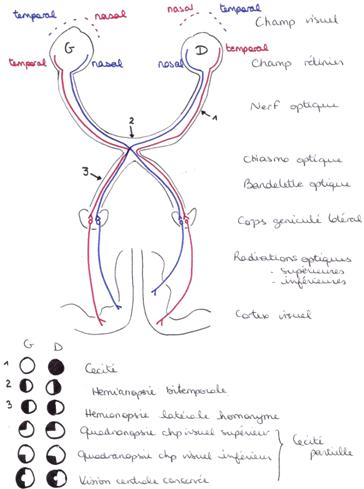 temporal nasal nasal temporal Champ visuel
G D
temporal nasal nasal temporal Champ rétinien
Nerf optique
1
2
Chiasma optique
3
Bandelette optique
Corps geniculé latéral
Radiations optiques
- supérieures
- inférieures
Cortex visuel
G D
1 Cécité
2 Hemianopsie bitemporale
3 Hemianopsie latérale homonyme
Quadranopsie chp visuel supérieur
Quadranopsie chp visuel inférieur
Cécité partielle
Vision centrale conservée